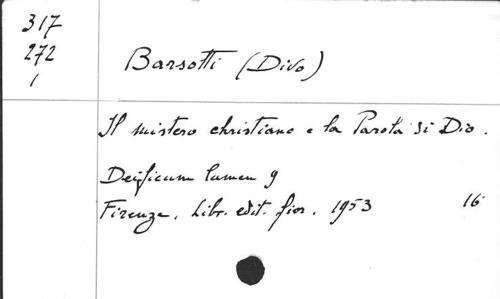 317
272
1
Barsotti (Divo)
Il mistero christiano e la Parola di Dio.
Deificum lumen 9
Firenze, Libr. edit. fior. 1953 16